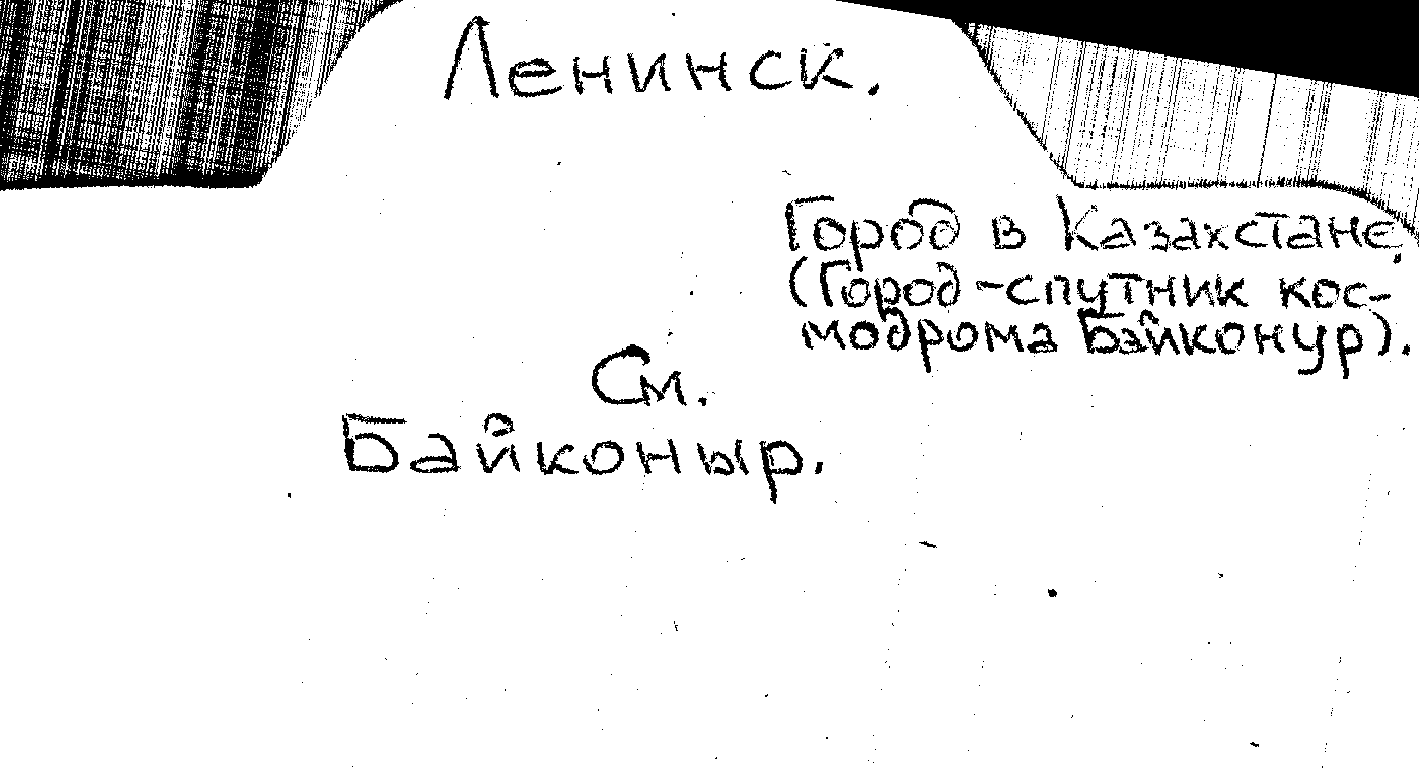 Ленинск.
Город в Казахстане.
(Город-спутник кос-
модрома Байконур).
См.
Байконыр.